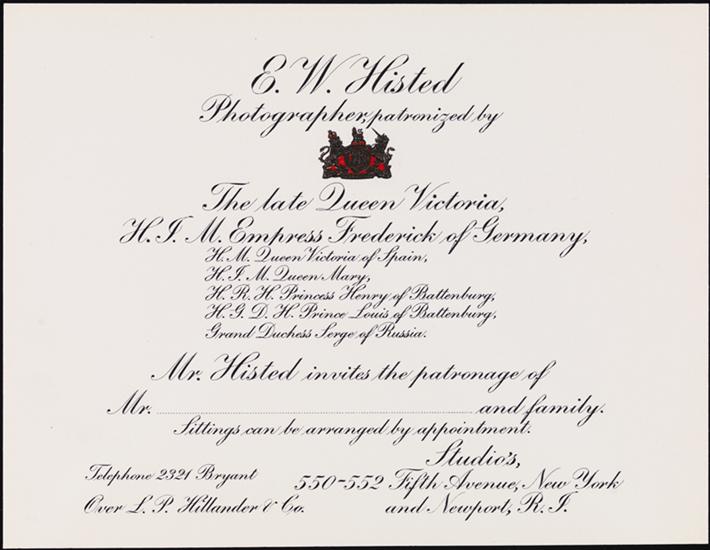 E. W. Histed
Photographer, patronized by
The late Queen Victoria,
H. I. M. Empress Frederick of Germany,
H. M. Queen Victoria of Spain,
H. I. M. Queen Mary,
H. R. H. Princess Henry of Battenburg,
H. G. D. H. Prince Louis of Battenburg,
Grand Duchess Serge of Russia.
Mr. Histed invites the patronage of
Mr. and family.
Sittings can be arranged by appointment.
Studio's,
Telephone 2321 Bryant 550-552 Fifth Avenue, New York
Over L. P. Hillander & Co. and Newport, R. I.